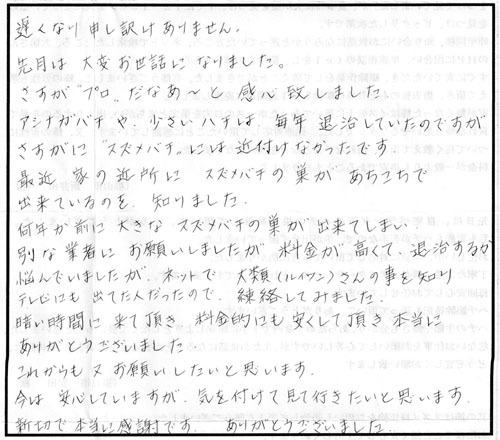 遅くなり申し訳ありません.
先月は大変お世話になりました。
さすが"プロ"だなあ〜と感心致しました
アシナガバチや、少さいハチは、毎年退治していたのですが
さすがに"スズメバチ"には近付けなかったです.
最近家の近所にスズメバチの巣があちこちで
出来ているのを、知りました.
何年か前に大きなスズメバチの巣が出来てしまい.
別な業者にお願いしましたが料金が高くて、退治するか
悩んでいましたが、ネットで大類(ルイワン)さんの事を知り
テレビにも出てた人だったので、練絡してみました.
暗い時間に来て頂き、料金的にも安くして頂き本当に
ありがとうございました
これからも又お願いしたいと思います.
今は安心していますが、気を付けて見て行きたいと思います.
新切で本当に感謝です. ありがとうございました.